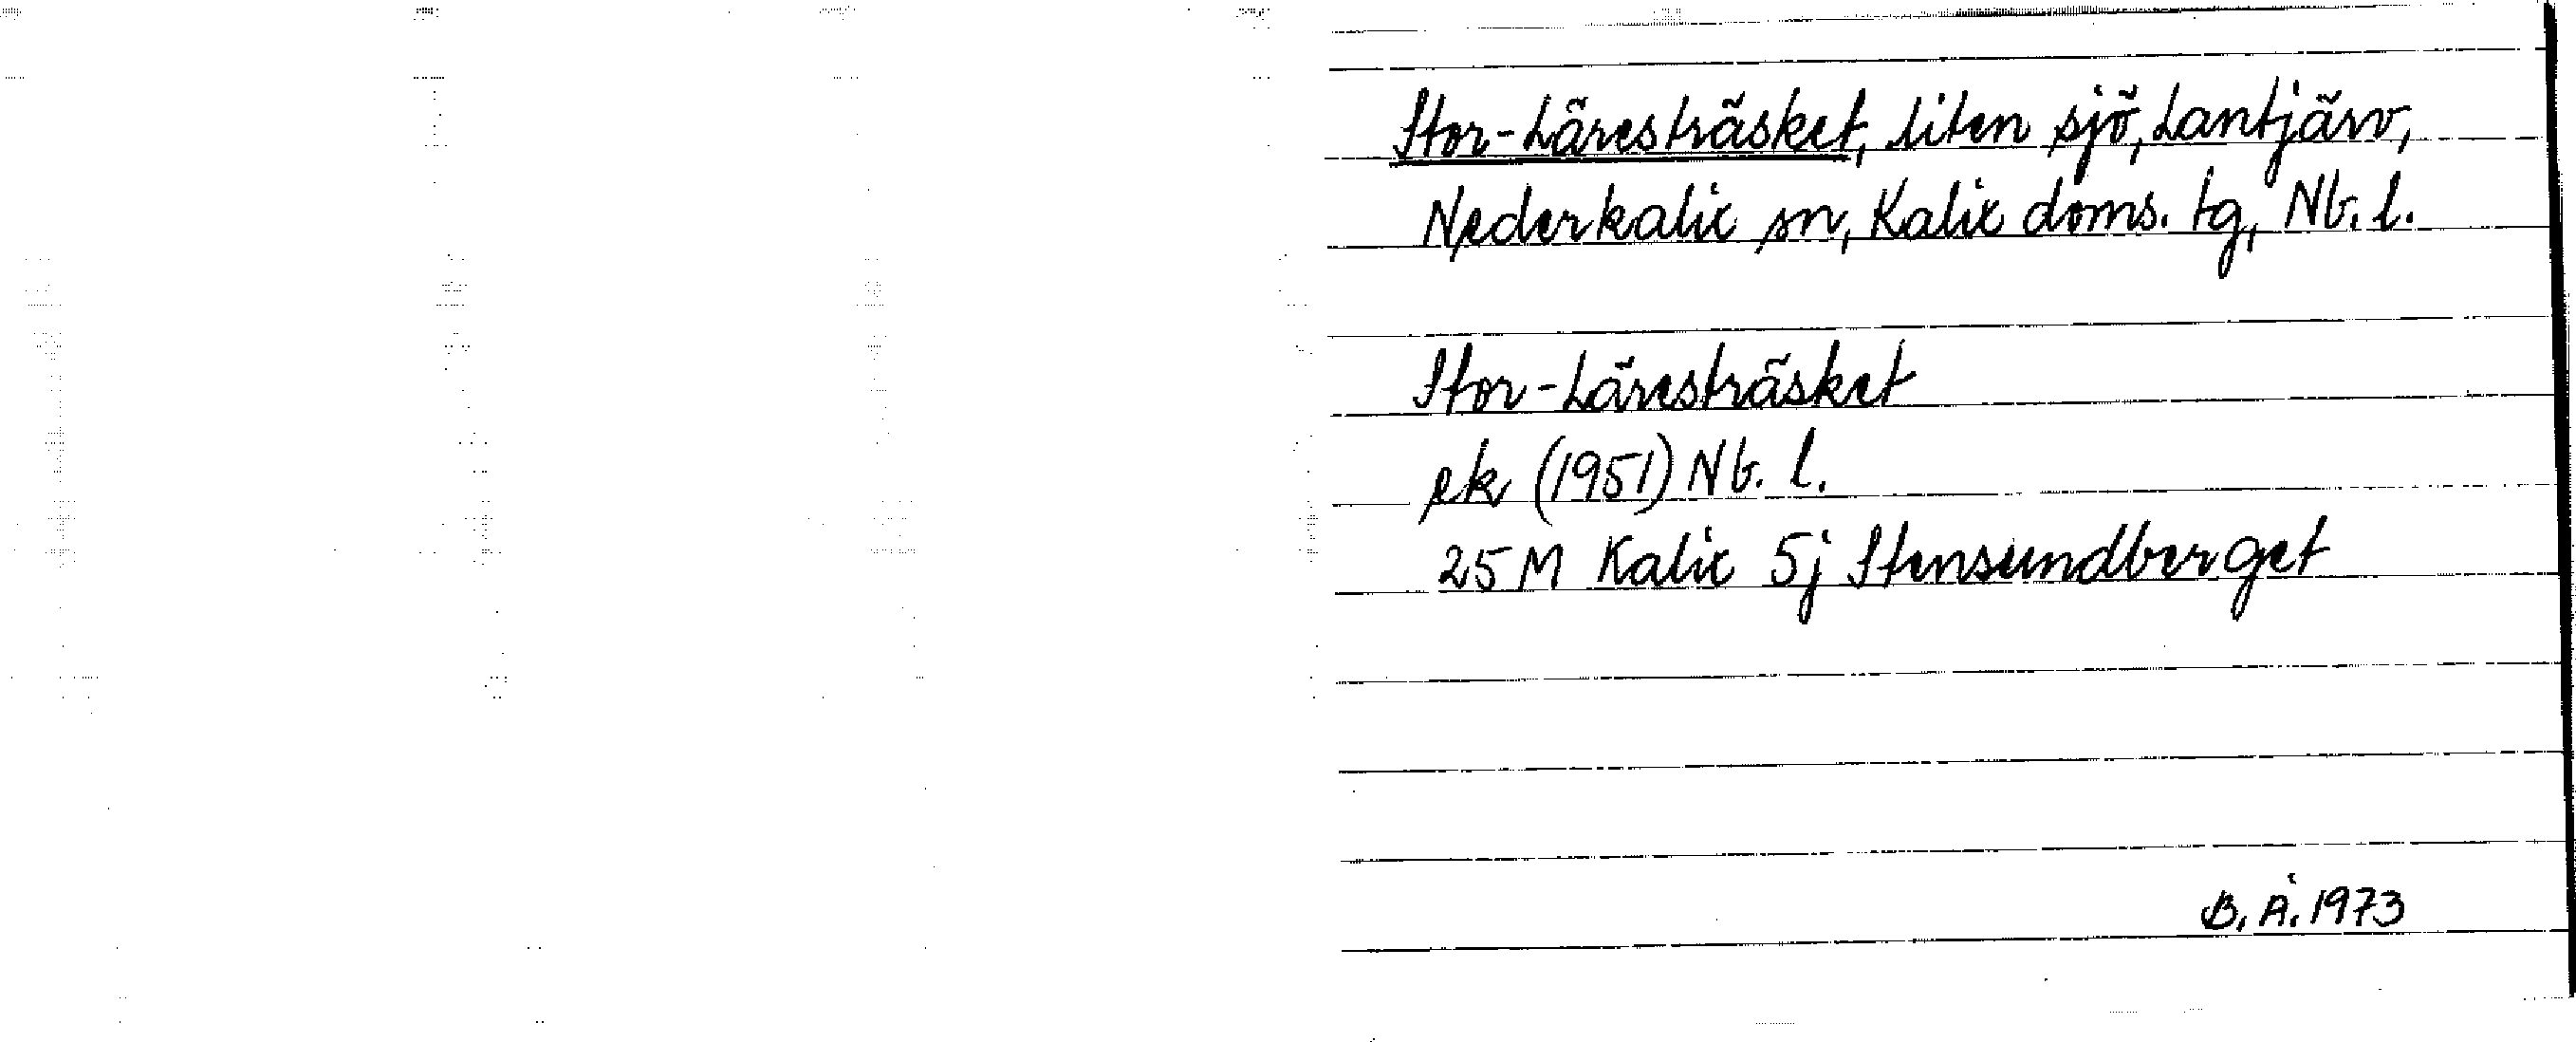 Stor-Läresträsket, liten sjö, Lantjärv,
Nederkalix sn, Kalix doms. tg, Nb. l.
Stor-Läresträsket
ek (1951) Nb. l.
25 M Kalix 5j Stensundberget
B. Å. 1973